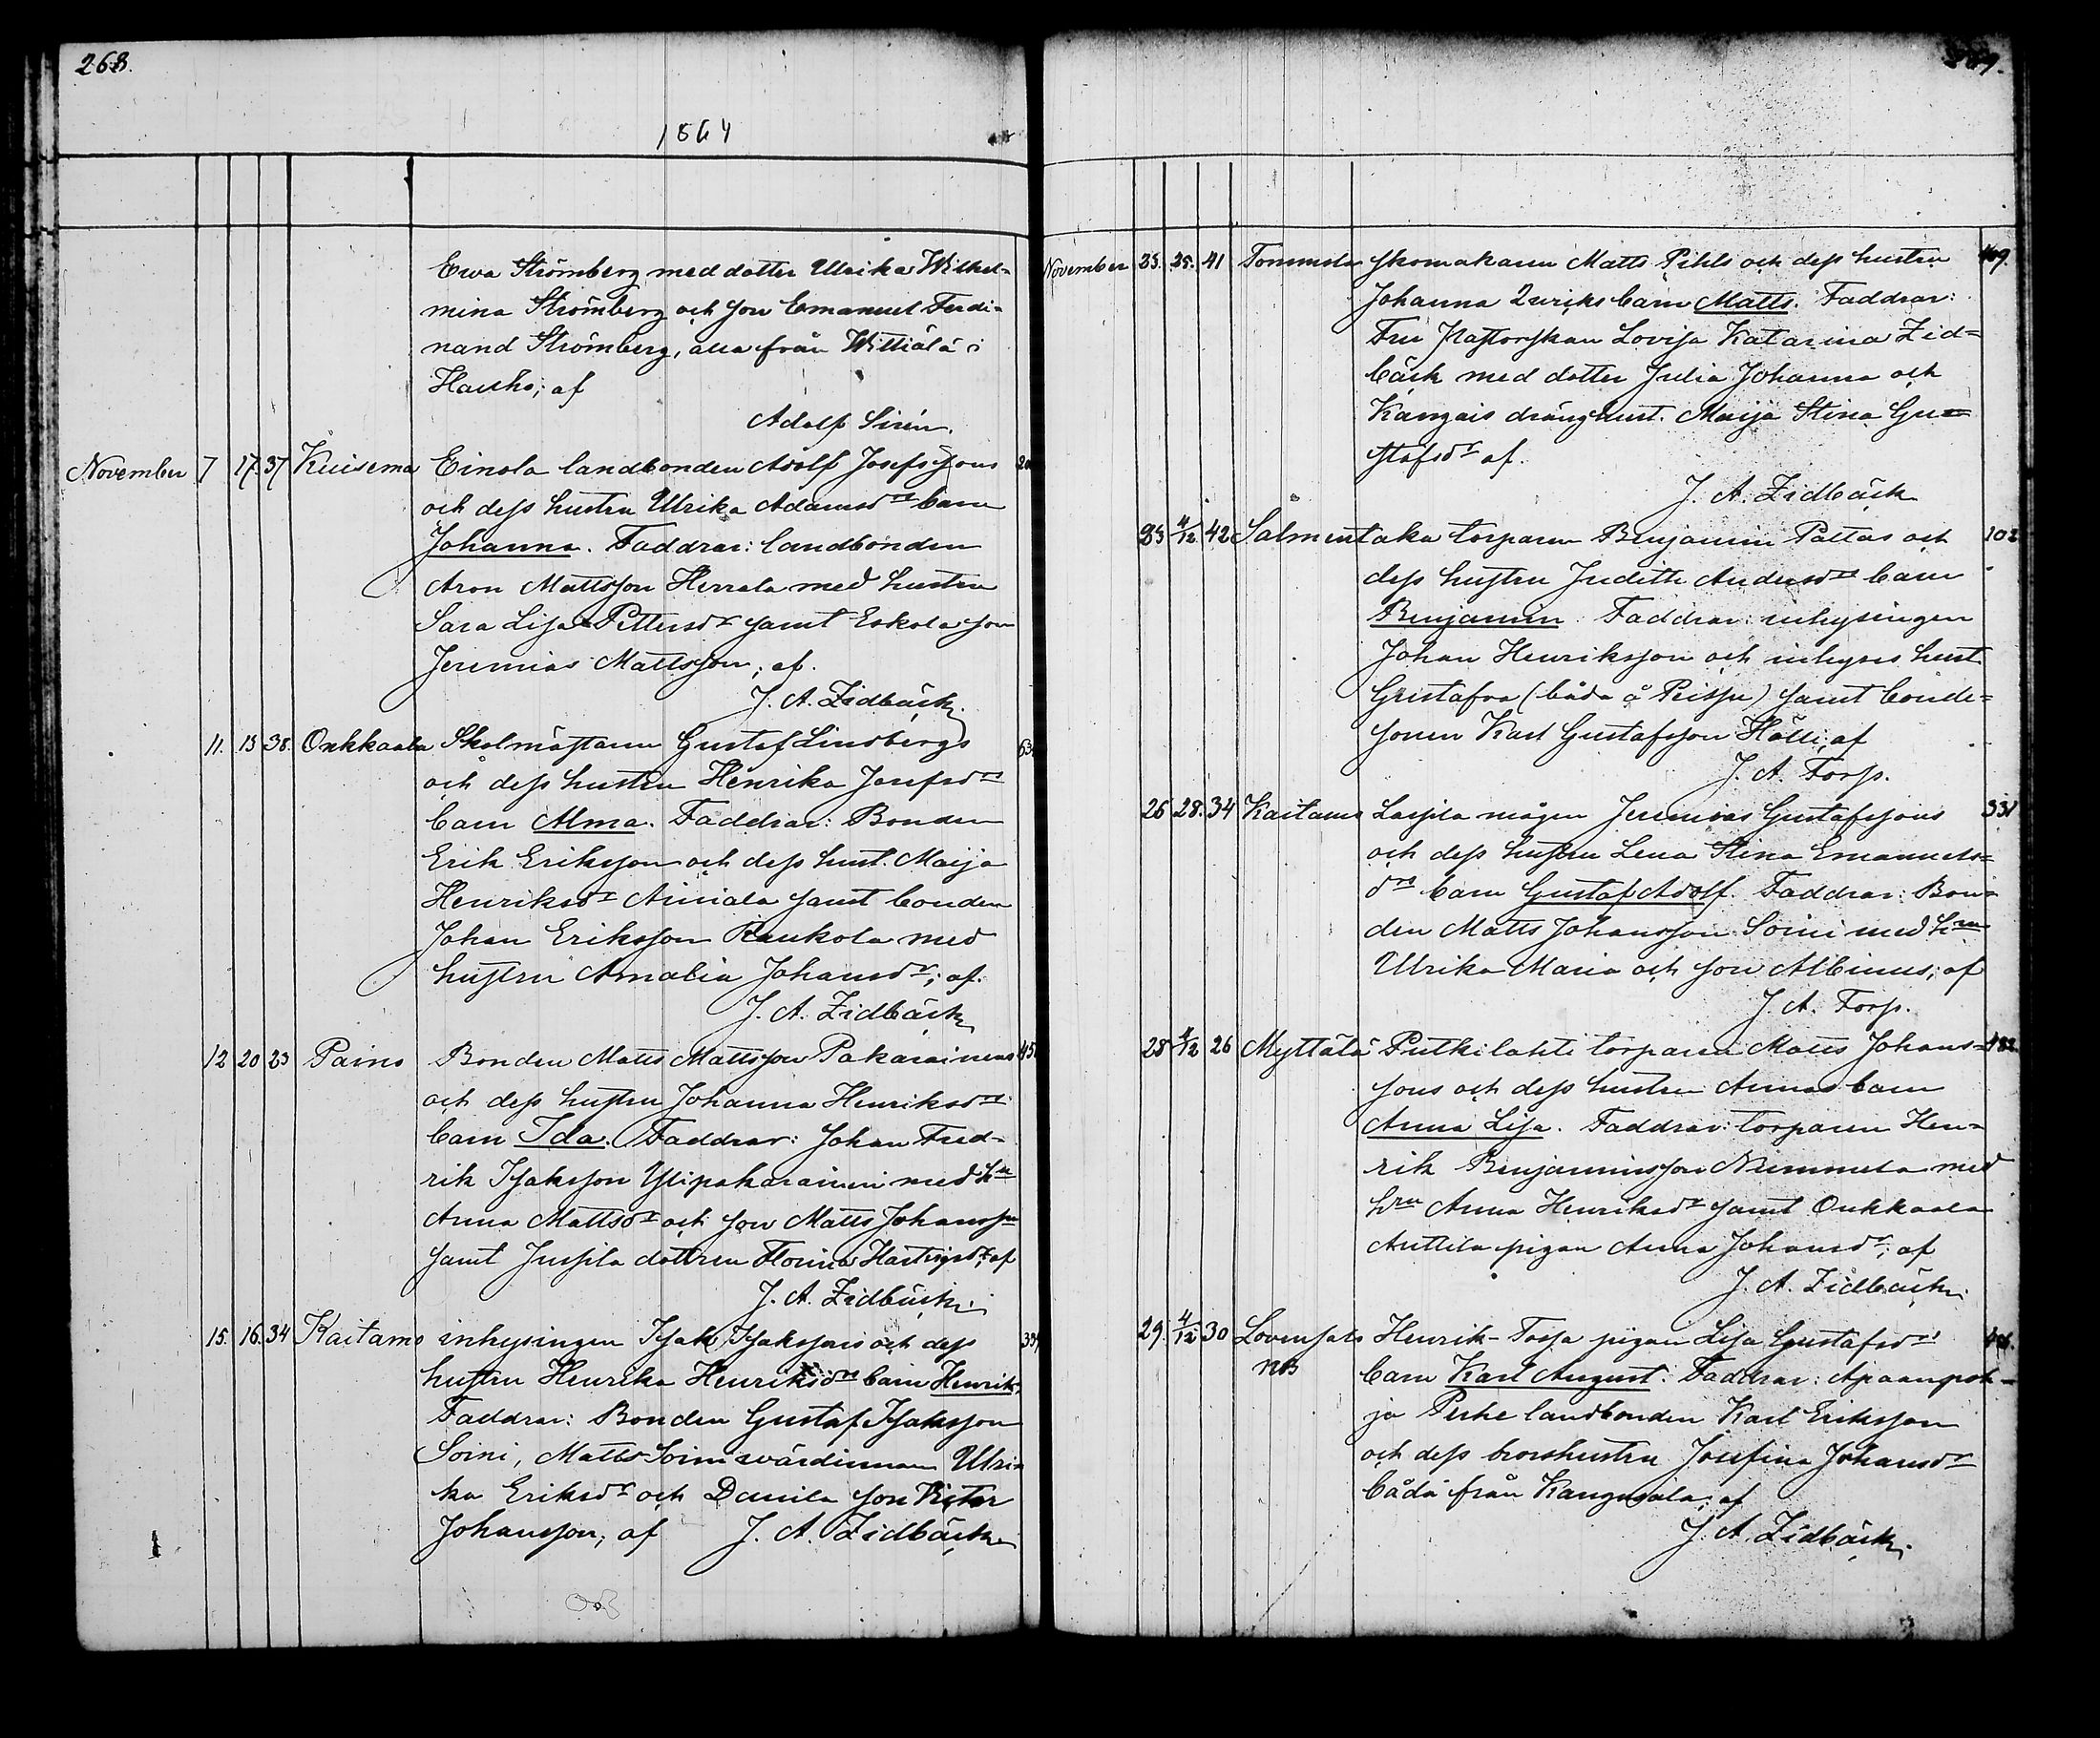 268.
1864
Ewa Strömberg med dotter Ulrika Wilhel=
mina Strömberg och son Emanuel Ferdi=
nand Strömberg, alla från Wittiälä i
Hauho; af
Adolf Sirén.
November 7 17. 37 Kuisema Einola landbonden Adolf Josefssons
och dess hustru Ulrika Adamsdrs barn
Johanna. Faddrar: landbonden
Aron Mattsson Herrala med hustru
Sara Lisa Pettersdr samt Eskola son
Jeremias Mattsson; af.
J. A. Zidbäck.
11. 13 38. Onkkaala Skolmästaren Gustaf Lindbergs 63
och dess hustru Henrika Josefsdrs
barn Alma. Faddrar: Bonden
Erik Eriksson och dess hust. Maija
Henriksdr Aimala samt bonden
Johan Eriksson Raukola med
hustru Amalia Johansdr; af.
J. A. Zidbäck
12 20 23 Paino Bonden Matts Mattsson Pakarainens
och dess hustru Johanna Henriksdrs
barn Ida. Faddrar: Johan Fred-
rik Isaksson Ylipakarainen med hru
Anna Mattsdr och son Matts Johansson
samt Jussila dottren Florina Hartvigsdr; af
J. A. Zidbäck.
15. 16. 34 Kaitamo inhysingen Isak Isakssons och dess
hustru Henrika Henriksdrs barn Henrik.
Faddrar: Bonden Gustaf Isaksson
Soini, Matts Soini värdinnan Ulri=
ka Eriksdr och Danila son Victor
Johansson; af J. A. Zidbäck
269.
November 23. 25. 41 Tommola skomakaren Matts Pihls och dess hustru 409.
Johanna barn Matts. Faddrar:
Fru Pastorskan Lovisa Katarina Zid=
bäck med dotter Julia Johanna och
Kangais dränghust. Maija Stina Gu=
stafsdr af.
J. A. Zidbäck
23 4/12 42 Salmentaka torparen Benjamin Pattas och 102
dess hustru Judith Andersdrs barn
Benjamin. Faddrar: inhysingen
Johan Henriksson och inhyses hust.
Gustafva (båda å Peisu) samt bonde=
sonen Karl Gustafsson Hölli; af
J. A. Forss.
26 28. 34 Kaitamo Lassila mågen Jeremias Gustafssons 331
och dess hustru Lena Stina Emanuels=
drs barn Gustaf Adolf. Faddrar: Bon=
den Matts Johansson Soini med hru
Ulrika Maria och son Albinus; af
J. A. Forss.
28 4/12 26 Myttälä Putkilahti torparen Matts Johans=
sons och dess hustru Annas barn
Anna Lisa. Faddrar: torparen Hen=
rik Benjaminsson Nummela med
hru Anna Henriksdr samt Onkkaala
Anttila pigan Anna Johansdr; af
J. A. Zidbäck.
29. 4/12 30 Lovensats Henrik-Tossa pigan Lisa Gustafsdrs
NB barn Karl August. Faddrar: Apaanpoh=
ja Perhe landbonden Karl Eriksson
och dess brorshustru Josefina Johansdr
båda från Kangasala; af
J. A. Zidbäck.